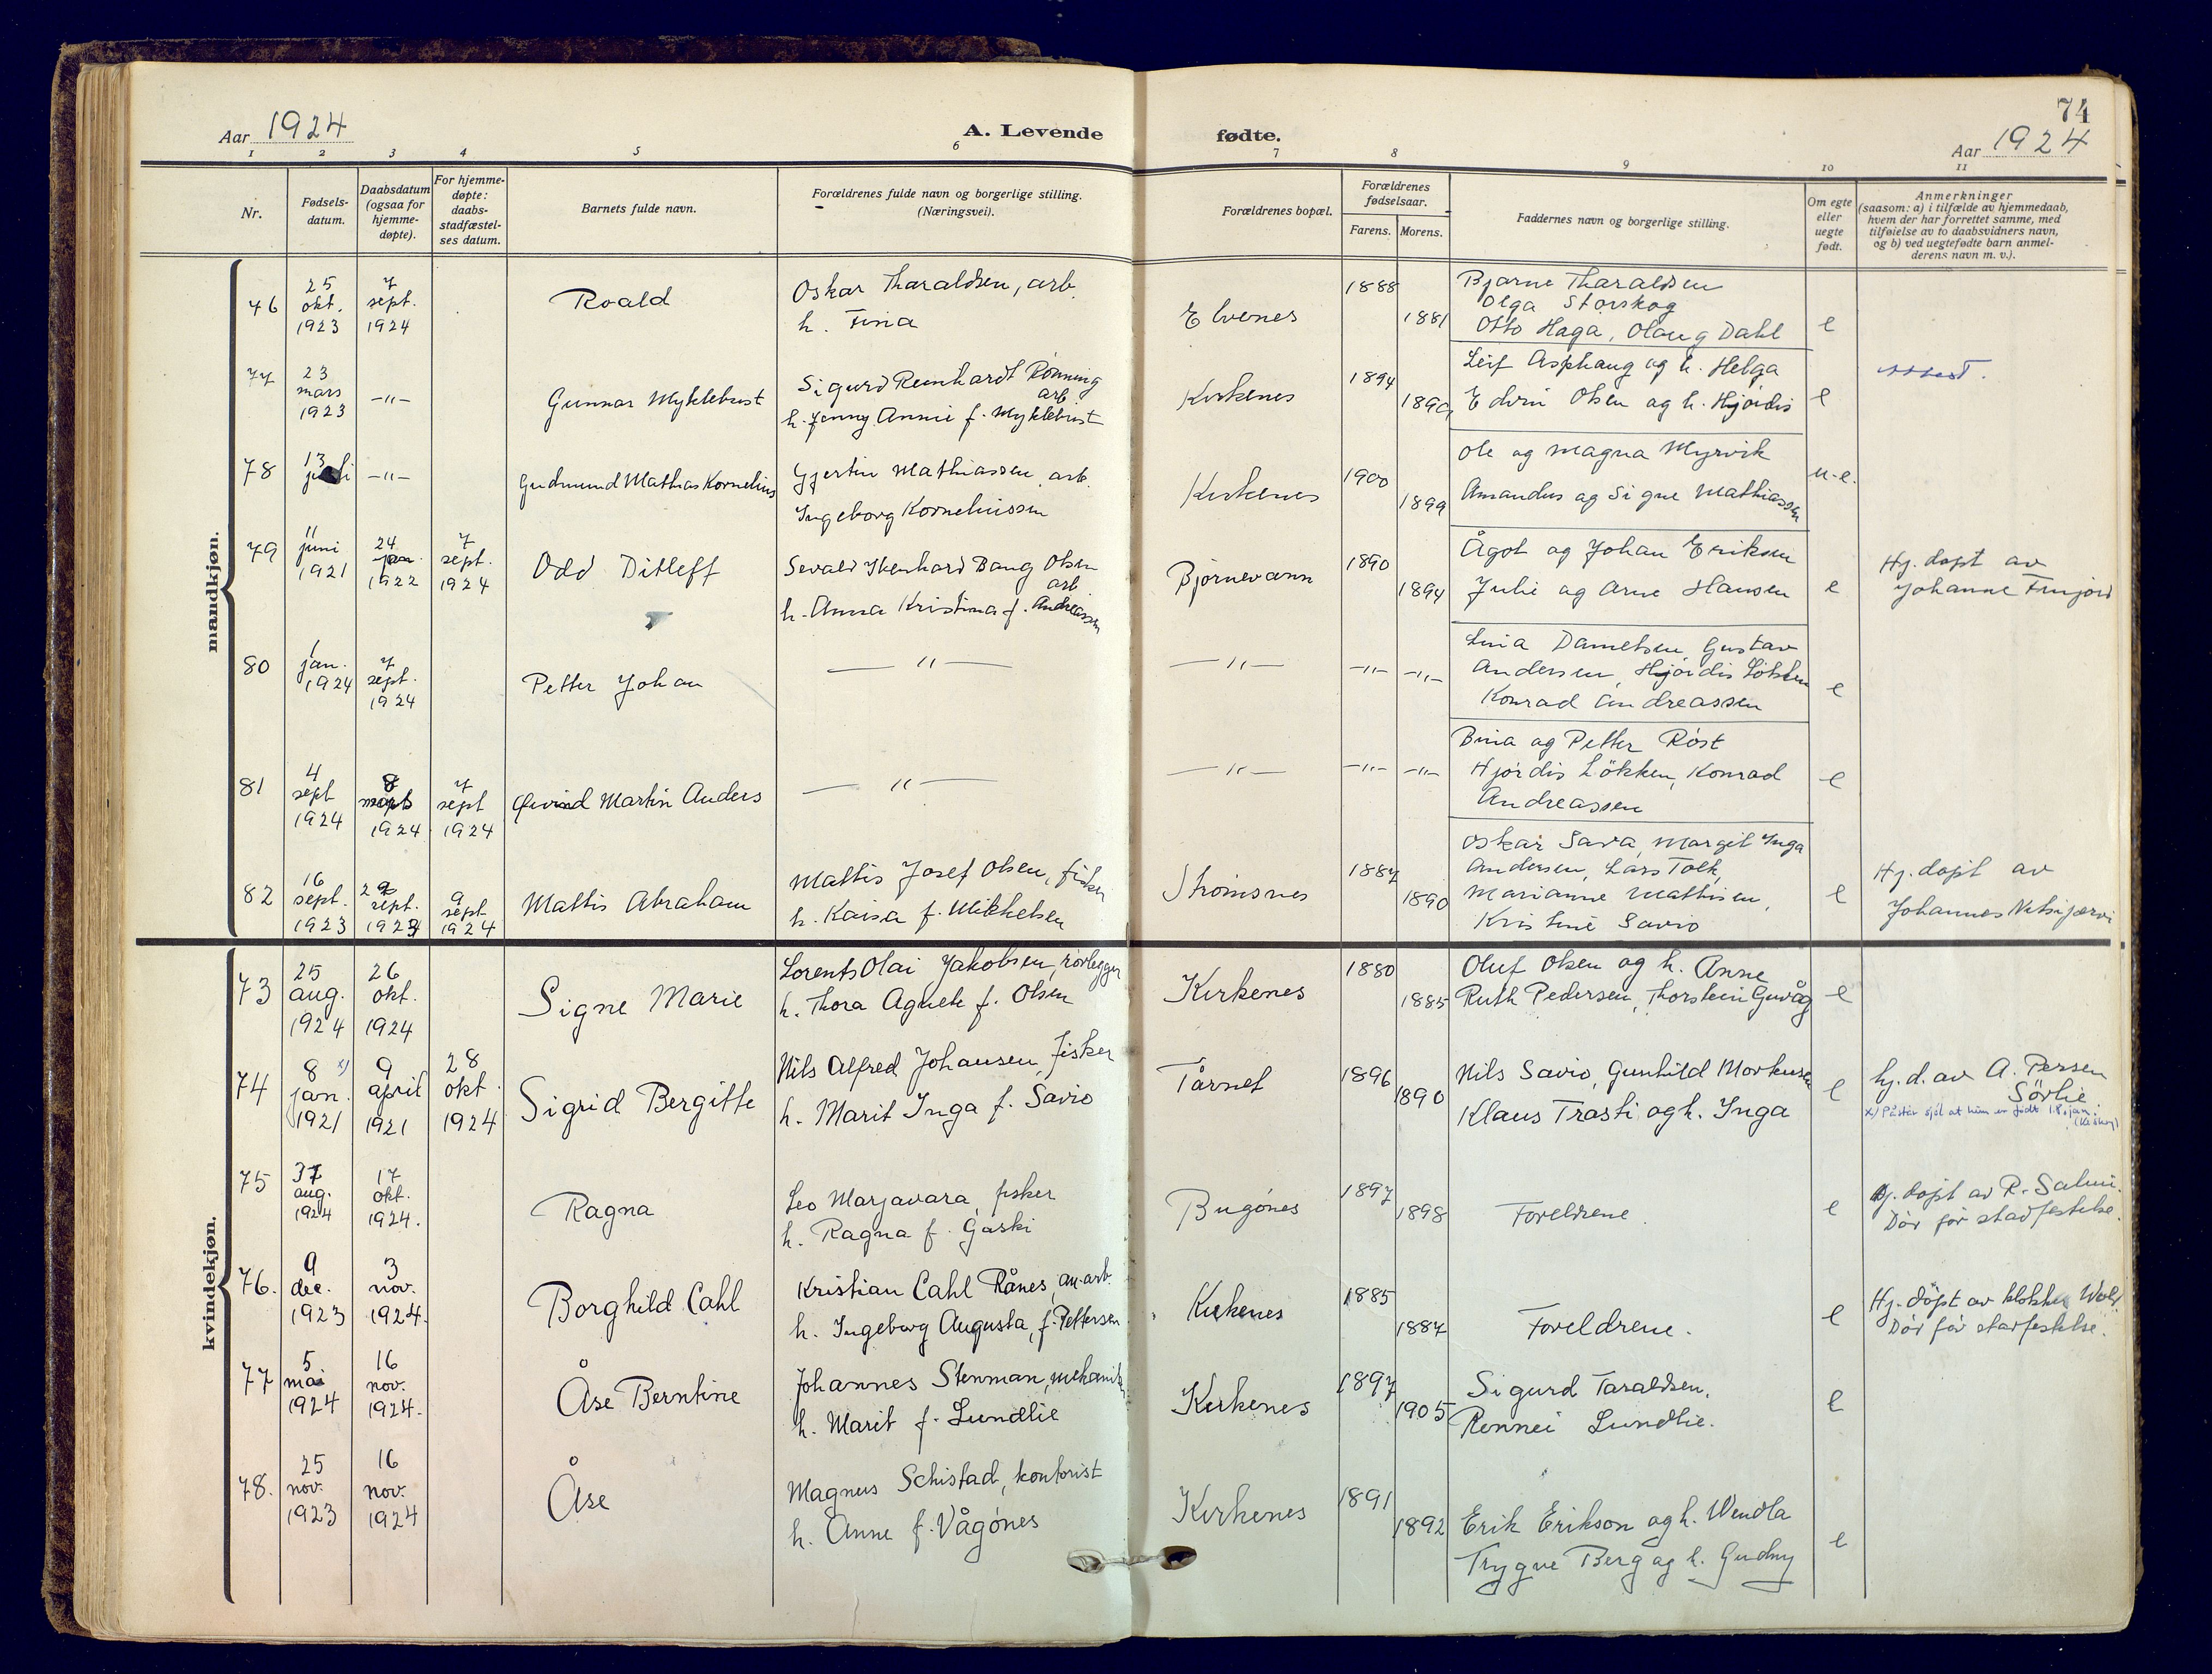 74
Aar 1924 A. Levende fødte. Aar 1924
1 2 3 4 5 6 7 8 9 10 11
Nr.
Fødsels-
datum.
Daabsdatum
(ogsaa for
hjemme-
døpte).
For hjemme-
døpte:
daabs-
stadfæstel-
ses datum.
Barnets fulde navn.
Forældrenes fulde navn og borgerlige stilling.
(Næringsvei).
Forældrenes bopæl.
Forældrenes
fødselsaar.
Farens. Morens.
Faddernes navn og borgerlige stilling.
Om egte
eller
uegte
født.
Anmerkninger
(saasom: a) i tilfælde av hjemmedaab,
hvem der har forrettet samme, med
tilføielse av to daabsvidners navn,
og b) ved uegtefødte barn anmel-
derens navn m. v.).
mandkjøn.
76
25
okt.
1923
7
sept.
1924
Roald
Oskar Tharaldsen, arb.
h. Fina
Elvenes
1888
1881
Bjarne Tharaldsen
Olga Storskog
Otto Haga, Olaug Dahl
e
77
23
mars
1923
-"-
Gunnar Myklebust
Sigurd Reinhardt Rönning
arb.
h. Jenny Annie f. Myklebust
Kirkenes
1894
1890
Leif Asphaug og h. Helga
Edvin Olsen og h. Hjördis
e
attest.
78
13
-"-
Gudmund Mathias Kornelius
Gjertin Mathiassen, arb.
Ingeborg Korneliussen
Kirkenes
1900
1899
Ole og Magna Myrvik
Amandus og Signe Mathiassen
u.e.
79
11
juni
1921
24
jan.
1922
7
sept.
1924
Odd Ditleff
Sevald Ikenhard Bang Olsen
arb.
h. Anna Kristina f. Andreassen
Bjørnevann
1890
1894
Ågot og Johan Eriksen
Julie og Arne Hansen
e
Hj. døpt av
Johanne Finjord
80
1
jan.
1924
7
sept.
1924
Petter Johan
-"-
-"-
-"- -"-
Lina Danielsen, Gustav
Andersen, Hjördis Lökken
Konrad Andreassen
e
81
4
sept
1924
8
1924
7
sept
1924
Øivind Martin Anders
-"-
-"-
-"- -"-
Bina og Petter Röst
Hjördis Lökken, Konrad
Andreassen
e
82
16
sept.
1923
29
sept.
1923
9
sept
1924
Mattis Abraham
Mattis Josef Olsen, fisker
h. Kaisa f. Mikkelsen
Strömsnes
1887
1890
Oskar Sava, Margit Inga
Andersen, Lars Tolk,
Marianne Mathisen,
Kristine Savio
e
Hj. døpt av
Johannes
kvindekjøn.
73
25
aug.
1924
26
okt.
1924
Signe Marie
Lorents Olai Jakobsen, rörlegger
h. Thora Agnete f. Olsen
Kirkenes
1880
1885
Oluf Olsen og h. Anne
Ruth Pedersen, Thorstein Guvåg
e
74
8 x)
jan.
1921
9
april
1921
28
okt.
1924
Sigrid Bergitte
Nils Alfred Johansen, fisker
h. Marit Inga f. Savio
Tårnet
1896
1890
Nils Savio, Gunhild Morkusen
Klaus Trasti og h. Inga
e
hj. d. av A. Persen
Sörlie
x) Påstår sjöl at hun er født 18. jan.
75
31
aug.
1924
17
okt.
1924.
Ragna
Leo Marjavara, fisker
h. Ragna f. Gaski
Bugönes
1897
1898
Foreldrene.
e
Hj. døpt av R. Salmi.
Död för stadfestelse.
76.
9
dec.
1923
3
nov.
1924.
Borghild Cahl
Kristian Cahl Rånes, an.arb.
h. Ingeborg Augusta, f. Pettersen
Kirkenes
1885
1887
Foreldrene.
e
Hj. döpt av klokker Wold.
Död för stadfestelse.
77
5.
mai
1924
16
nov.
1924.
Åse Berntine
Johannes Stenman, mekaniker
h. Marit f. Lundlie
Kirkenes
1897
1905
Sigurd Taraldsen,
Rennei Lundlie.
e
78.
25
nov.
1923
16
nov.
1924
Åse
Magnus Schistad, kontorist
h. Anne f. Vågönes
Kirkenes
1891
1892
Erik Erikson og h. Wendla
Trygve Berg og h. Gudny
e